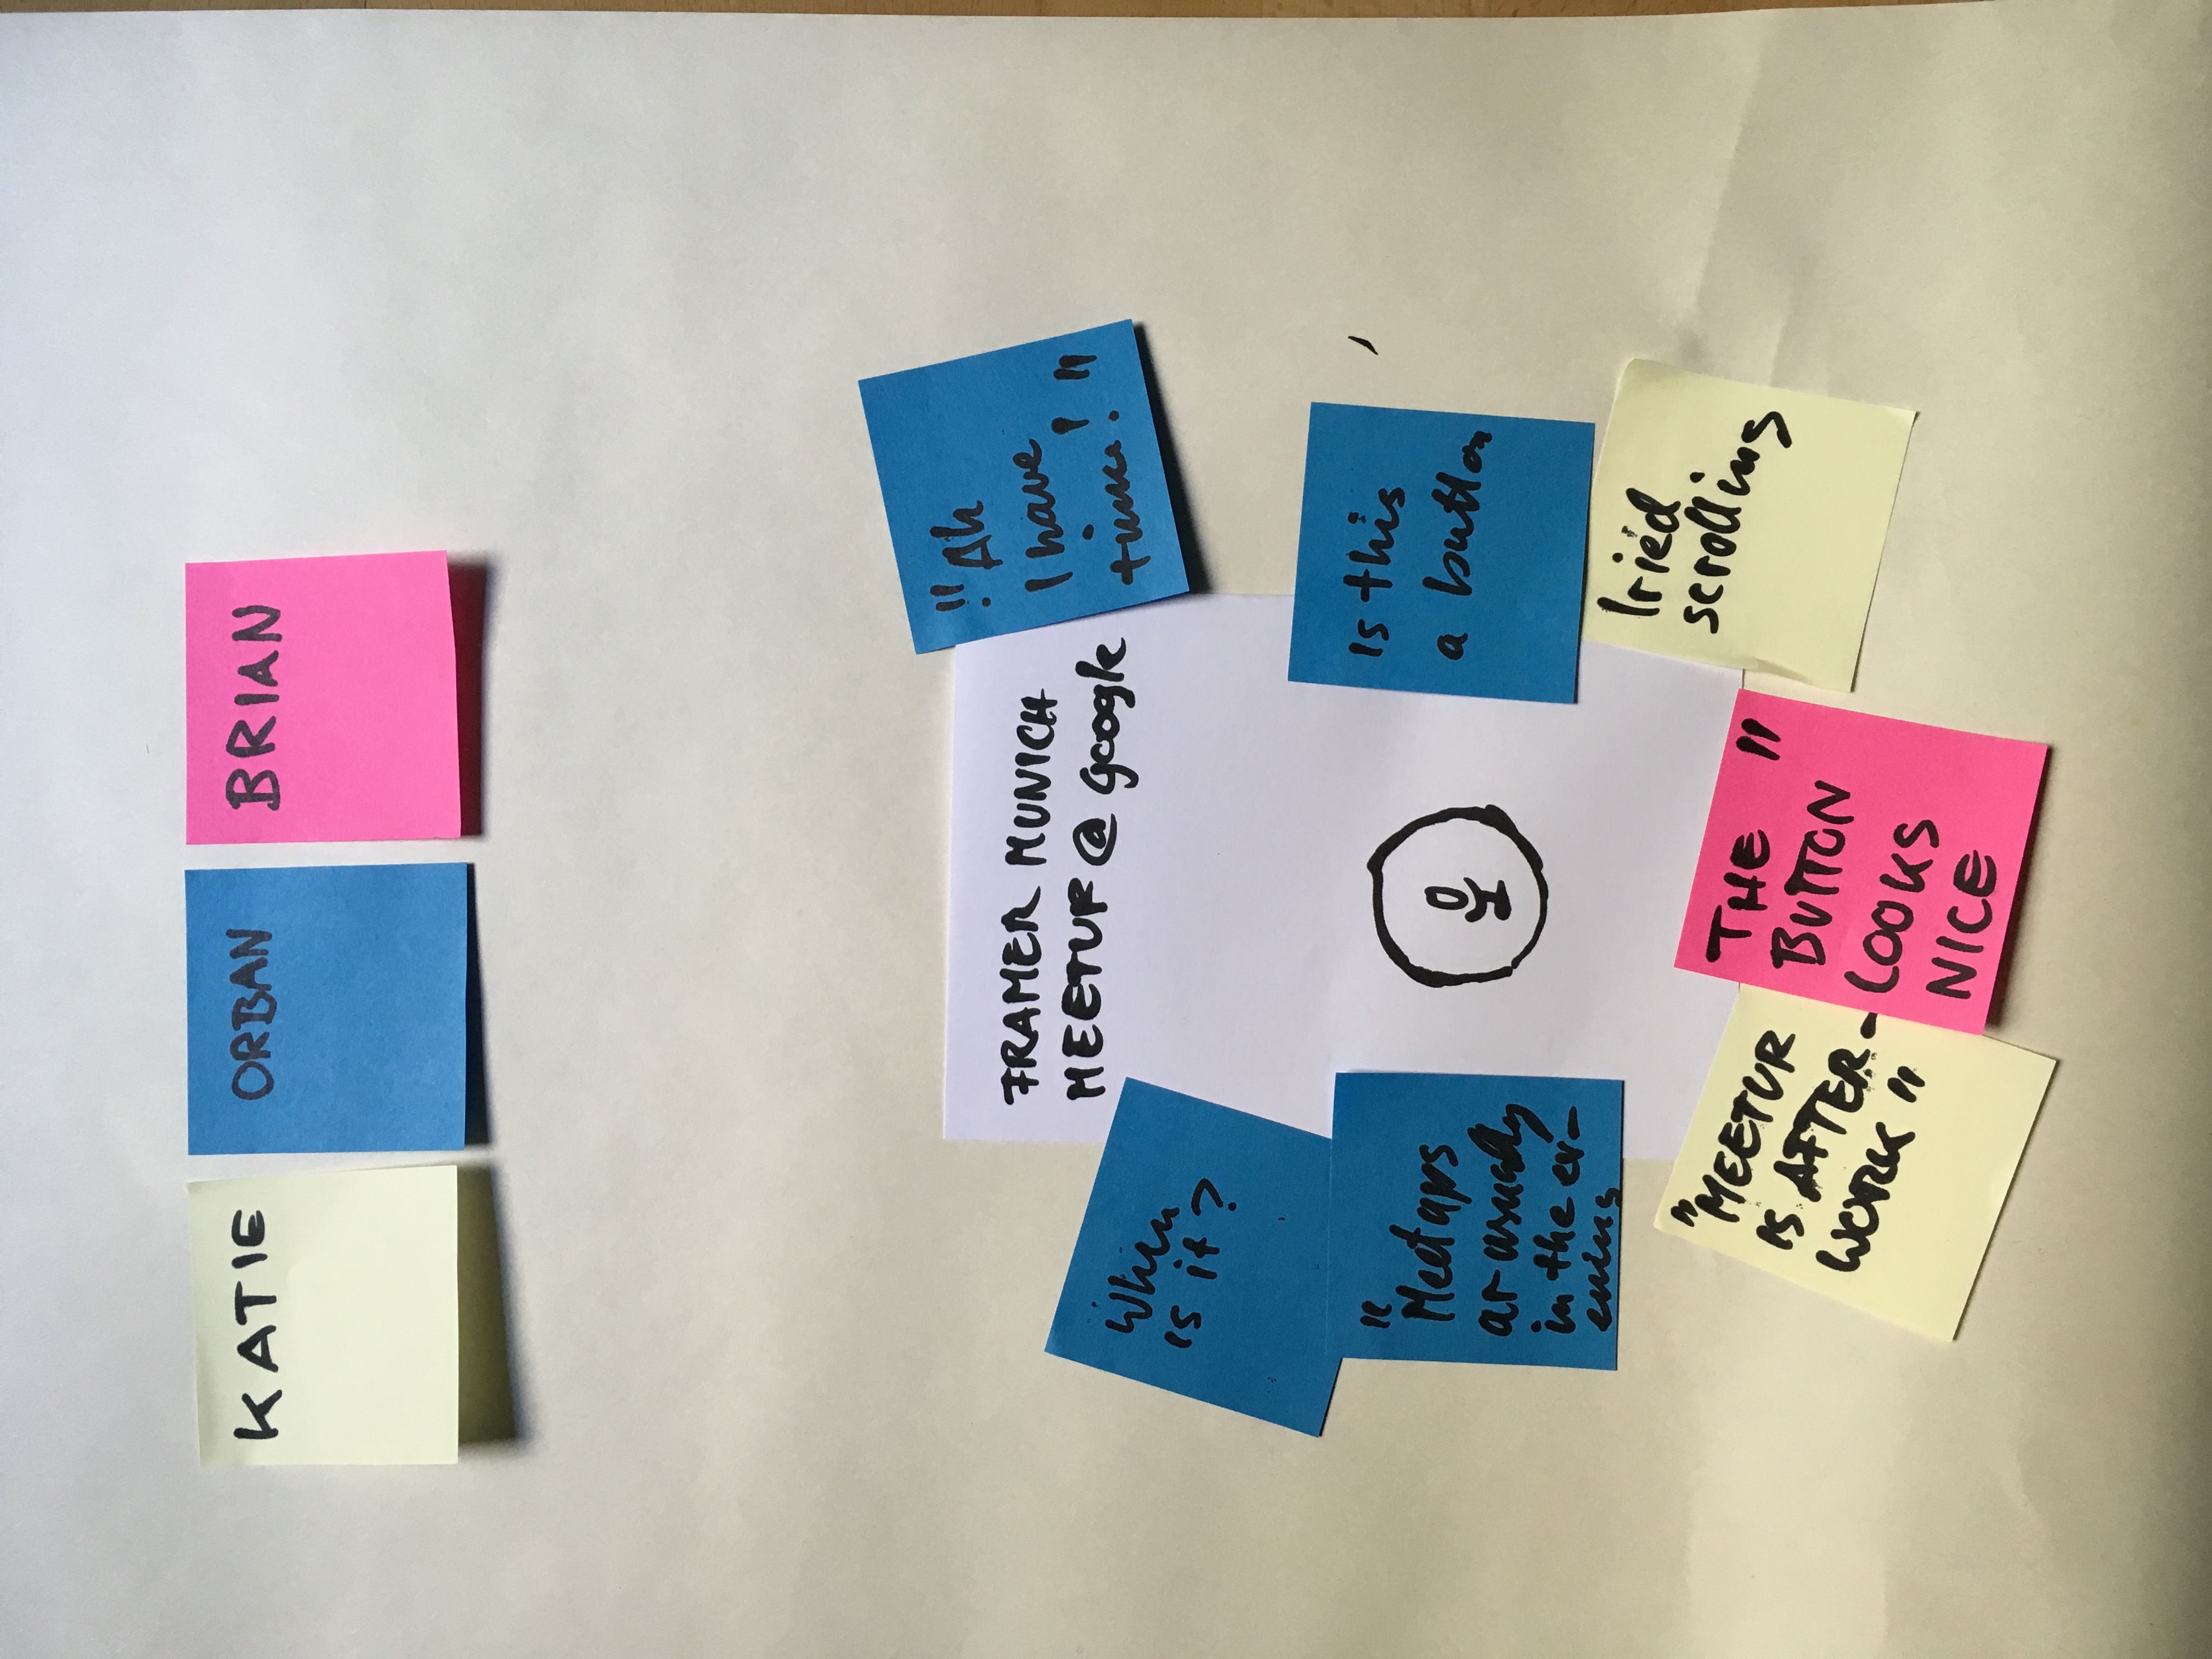 KATIE
ORBAN
BRIAN
FRAMER MUNICH
MEETUP @ google
"Ah
I have
time! "
When
is it?
"
Meetups
ar usually
in the ev-
ening
Is this
a button
Tried
scrolling
"MEETUP
IS AFTER-
WORK "
THE "
BUTTON
LOOKS
NICE